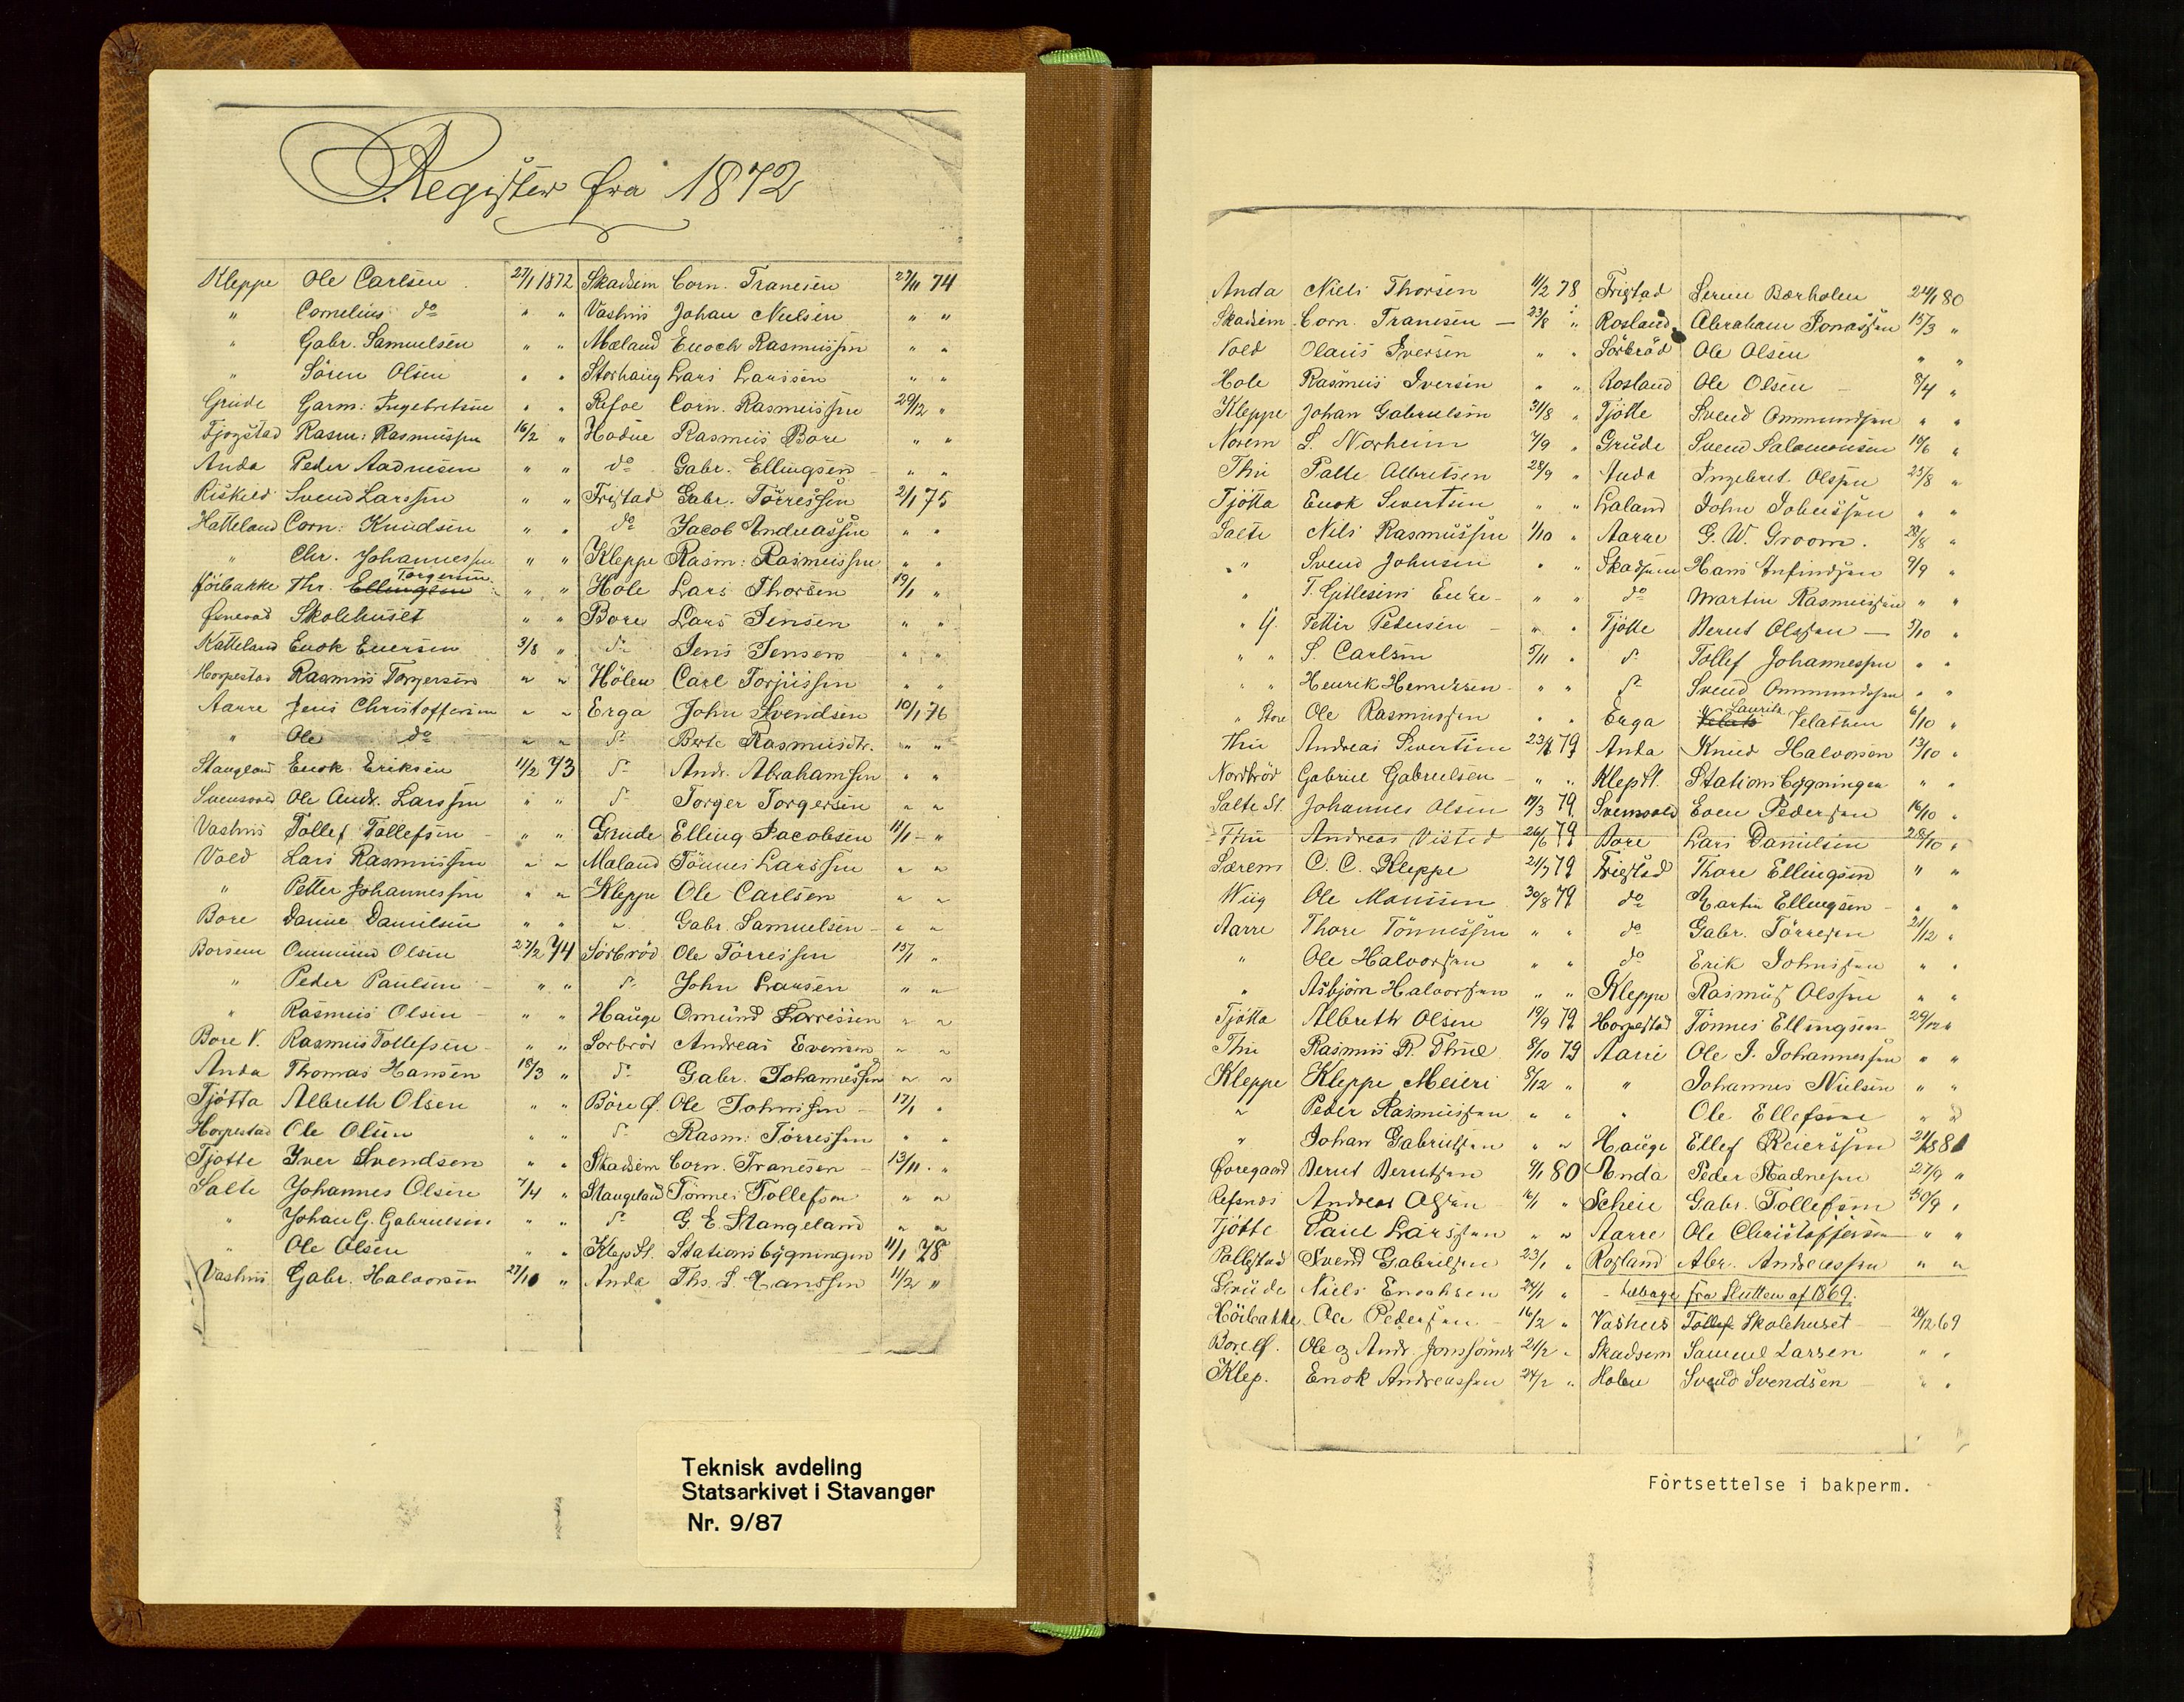 Register fra 1872
Kleppe Ole Carlsen 27/1 1872
" Cornelius do " "
" Gabr. Samuelsen " "
" Sören Olsen " "
Grude Garm: Ingebretsen " "
Fjogstad Rasm: Rasmussen 16/2 "
Anda Peder Aadnesen " "
Riskild Svend Larssen " "
Hatteland Corn: Knudsen " "
" Chr. Johannessen " "
Hörbakke Thr. Ellingsen Torgersen " "
Øxnevad Skolehuset " "
Katteland Enok Enersen 3/8 "
Horpestad Rasmus Torgersen " "
Aarre Jens Christoffersen " "
" Ole do " "
Stangland Enok Eriksen 11/2 73
Svensvold Ole Andr. Larssen " "
Vashus Tollef Tollefsen " "
Vold Lars Rasmussen " "
" Petter Johannessen " "
Bore Danie Danielsen " "
Borsem Ommund Olsen 27/2 74
" Peder Paulsen " "
" Rasmus Olsen " "
Bore V. Rasmus Tollefsen " "
Anda Thomas Hansen 18/3 "
Tjötta Albreth Olsen " "
Horpestad Ole Olsen " "
Tjotte Iver Svendsen " "
Salte Johannes Olsen 7/4 "
" Johan G. Gabrielsen " "
" Ole Olsen " "
Vashus Gabr. Halvorsen 27/10 "
Skadsem Corn. Tranesen 27/11 74
Vashus Johan Nielsen " "
Mæland Enoch Rasmussen " "
Storhaug Lars Larssen " "
Refoe Corn. Rasmussen 29/12 "
Hodne Rasmus Bore " "
do Gabr. Ellingsen " "
Fristad Gabr. Törressen 2/1 75
do Jacob Andreassen " "
Kleppe Rasm: Rasmussen " "
Hole Lars Thorsen 19/1 "
Bore Lars Jensen " "
do Jens Jensen " "
Hölen Carl Torjussen " "
Erga John Svendsen 10/1 76
do Berte Rasmusdtr. " "
do Andr. Abrahamsen " "
do Torger Torgersen " "
Grude Elling Jacobsen 11/1 "
Maland Tönnes Larssen " "
Kleppe Ole Carlsen " "
" Gabr. Samuelsen " "
Sörbröd Ole Törressen 15/1 "
do John Larsen " "
Hauge Omund Torressen " "
Sorbröd Andreas Evensen " "
do Gabr. Johannessen " "
Böre Ø. Ole Johnssen 17/1 "
do Rasm: Törressen " "
Skadsem Corn. Tranesen 13/11 "
Stangeland Tönnes Tollefsen " "
do G. E. Stangeland " "
Klep St. Stationsbygningen 11/1 78
Anda Ths. L. Hanssen 11/2 "
Teknisk avdeling
Statsarkivet i Stavanger
Nr. 9/87
Anda Niels Thorsen 11/2 78
Skadsem Corn. Tranesen 23/8 "
Vold Olaus Iversen " "
Hole Rasmus Iversen " "
Kleppe Johan Gabrielsen 31/8 "
Norem S. Norheim 7/9 "
Thu Palle Albretsen 28/9 "
Tjötta Enok Sivertsen " "
Salte Nils Rasmussen 1/10 "
" Svend Johnsen " "
" T. Gitlesens Enke " "
" G. Petter Pedersen " "
" " S. Carlsen 5/11 "
" " Henrik Henriksen " "
" Store Ole Rasmussen " "
Thu Andreas Sivertsen 23/1 79
Nordbröd Gabriel Gabrielsen " "
Salte St. Johannes Olsen 19/3 79
Thu Andreas Visted 26/6 79
Særem C. C. Kleppe 21/7 79
Wiig Ole Monssen 30/8 79
Aarre Thore Tönnessen " "
" Ole Halvorsen " "
" Asbjörn Halvorsen " "
Tjötta Albreth Olsen 19/9 79
Thu Rasmus R. Thue 8/10 79
Kleppe Kleppe Meieri 8/12 "
" Peder Rasmussen " "
" Johan Gabrielsen " "
Øoregaard Berut Berutsen 9/1 80
Refsnes Andreas Olsen "
Tjötte Paul Larssen " "
Pallestad Svend Gabrielsen 23/1 "
Grude Niels Enochsen 24/1 "
Hörbakke Ole Pedersen 16/2 "
Bore Ø. Ole og Andr. Jonssönner 21/2 "
Klep. Enok Andreassen 24/2 "
Fristad Seren Bærholen 24/1 80
Rosland Abraham Jonassen 15/3 "
Sörbröd Ole Olsen " "
Rosland Ole Olsen 8/4 "
Tjötte Svend Ommundsen " "
Grude Svend Salomonsen "
Anda Ingebret Olsen 23/8 "
Laland John Johnssen " "
Aarre G. W. Groom. 28/8 "
Skadsem Hans Anfindsen 9/9 "
do Martin Rasmussen " "
Tjötte Berut Olssen 5/10 "
do Tollef Johannessen " "
do Svend Ommundssen " "
Erga Laurits Velatsen 6/10 "
Anda Knud Halvorsen 13/10 "
Klep St. Stationsbygningen " "
Svensvold Even Pedersen 16/10 "
Bore Lars Danielsen 28/10 "
Fristad Thore Ellingsen " "
do Martin Ellingsen " "
do Gabr. Törresen 21/12 "
do Erik Johnssen " "
Kleppe Rasmus Olssen " "
Horpestad Tönnes Ellingsen 29/12 "
Aarre Ole J. Johannessen " "
" Johannes Nielsen " "
" Ole Ellefsen " "
Hauge Ellef Reierssen 81
Anda Peder Aadnesen 27/9 "
Scheie Gabr. Tollefsen 30/9 "
Aarre Ole Christoffersen " "
Rosland Abr. Andreassen " "
- tilbage fra Slutten af 1869.
Vashus Tollef Skolehuset 69
Skadsem Samuel Larsen " "
Holen Svend Svendsen " "
Fortsettelse i bakperm.